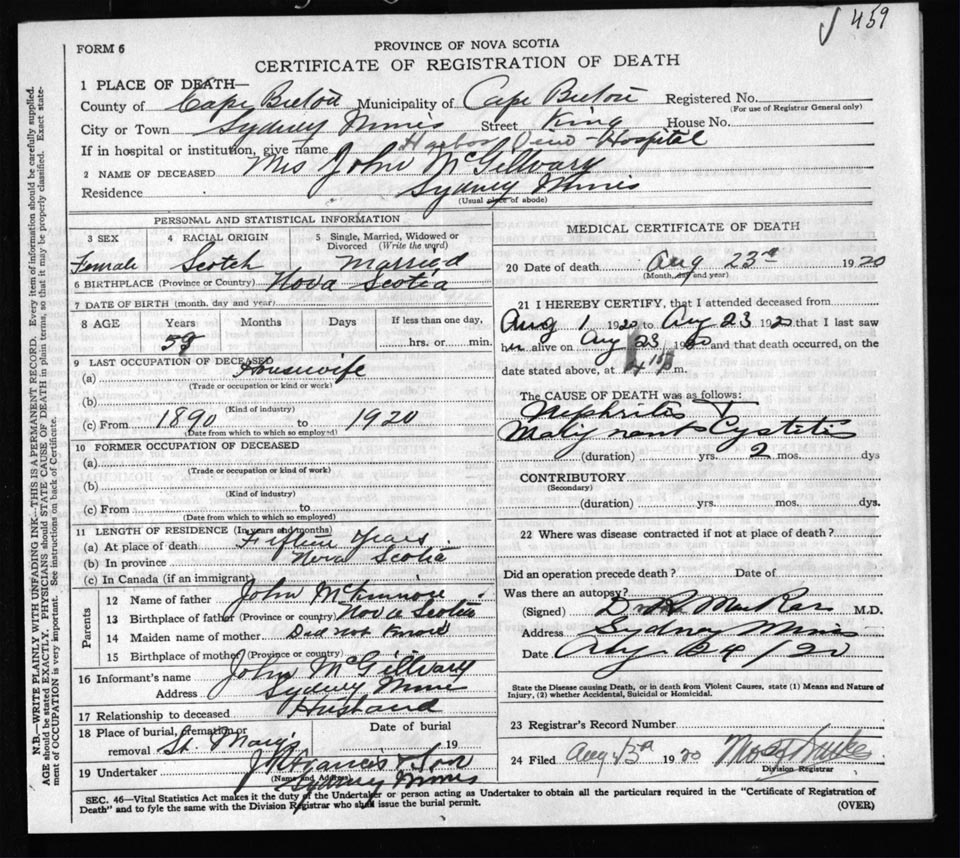 459
FORM 6
PROVINCE OF NOVA SCOTIA
CERTIFICATE OF REGISTRATION OF DEATH
1 PLACE OF DEATH—
County of Cape Breton Municipality of Cape Breton Registered No.
(For use of Registrar General only)
City or Town Sydney Mines Street King House No.
If in hospital or institution, give name Harbor View Hospital
2 NAME OF DECEASED Mrs John McGillvary
Residence Sydney Mines
(Usual place of abode)
PERSONAL AND STATISTICAL INFORMATION
3 SEX 4 RACIAL ORIGIN 5 Single, Married, Widowed or Divorced (Write the word)
Female Scotch Married
6 BIRTHPLACE (Province or Country) Nova Scotia
7 DATE OF BIRTH (month, day and year)
8 AGE Years Months Days If less than one day,
59 hrs. or min.
9 LAST OCCUPATION OF DECEASED
(a) Housewife
(Trade or occupation or kind or work)
(b)
(Kind of industry)
(c) From 1890 to 1920
(Date from which to which so employed)
10 FORMER OCCUPATION OF DECEASED
(a)
(Trade or occupation or kind of work)
(b)
(Kind of industry)
(c) From to
(Date from which to which so employed)
11 LENGTH OF RESIDENCE (In years and months)
(a) At place of death Fifteen Years
(b) In province Nova Scotia
(c) In Canada (if an immigrant)
Parents
12 Name of father John
13 Birthplace of father (Province or country) Nova Scotia
14 Maiden name of mother Did not Know
15 Birthplace of mother (Province or country)
16 Informant's name John McGillvary
Address Sydney Mines
17 Relationship to deceased Husband
18 Place of burial, cremation or removal St. Mary's Date of burial 19
19 Undertaker J. Francis & Son
(Name and Address) Sydney Mines
MEDICAL CERTIFICATE OF DEATH
20 Date of death Aug 23rd 1920
(Month, day and year)
21 I HEREBY CERTIFY, that I attended deceased from
Aug 1 1920 to Aug 23 1920 that I last saw
her alive on Aug 23 1920 and that death occurred, on the
date stated above, at 4 15 p m.
The CAUSE OF DEATH was as follows:
Nephritis &
Malignant Cystitis
(duration) yrs. 2 mos. dys
CONTRIBUTORY
(Secondary)
(duration) yrs. mos. dys.
22 Where was disease contracted if not at place of death?
Did an operation precede death? Date of
Was there an autopsy?
(Signed) M.D.
Address Sydney Mines
Date Aug 24/20
State the Disease causing Death, or in death from Violent Causes, state (1) Means and Nature of
Injury, (2) whether Accidental, Suicidal or Homicidal.
23 Registrar's Record Number
24 Filed Aug 1920
Division Registrar
SEC. 46—Vital Statistics Act makes it the duty of the Undertaker or person acting as Undertaker to obtain all the particulars required in the "Certificate of Registration of
Death" and to fyle the same with the Division Registrar who shall issue the burial permit.
(OVER)
N.B.—WRITE PLAINLY WITH UNFADING INK—THIS IS A PERMANENT RECORD. Every item of information should be carefully supplied.
AGE should be stated EXACTLY. PHYSICIANS should STATE CAUSE OF DEATH in plain terms, so that it may be properly classified. Exact state-
ment of OCCUPATION is very important. See instructions on back of Certificate.